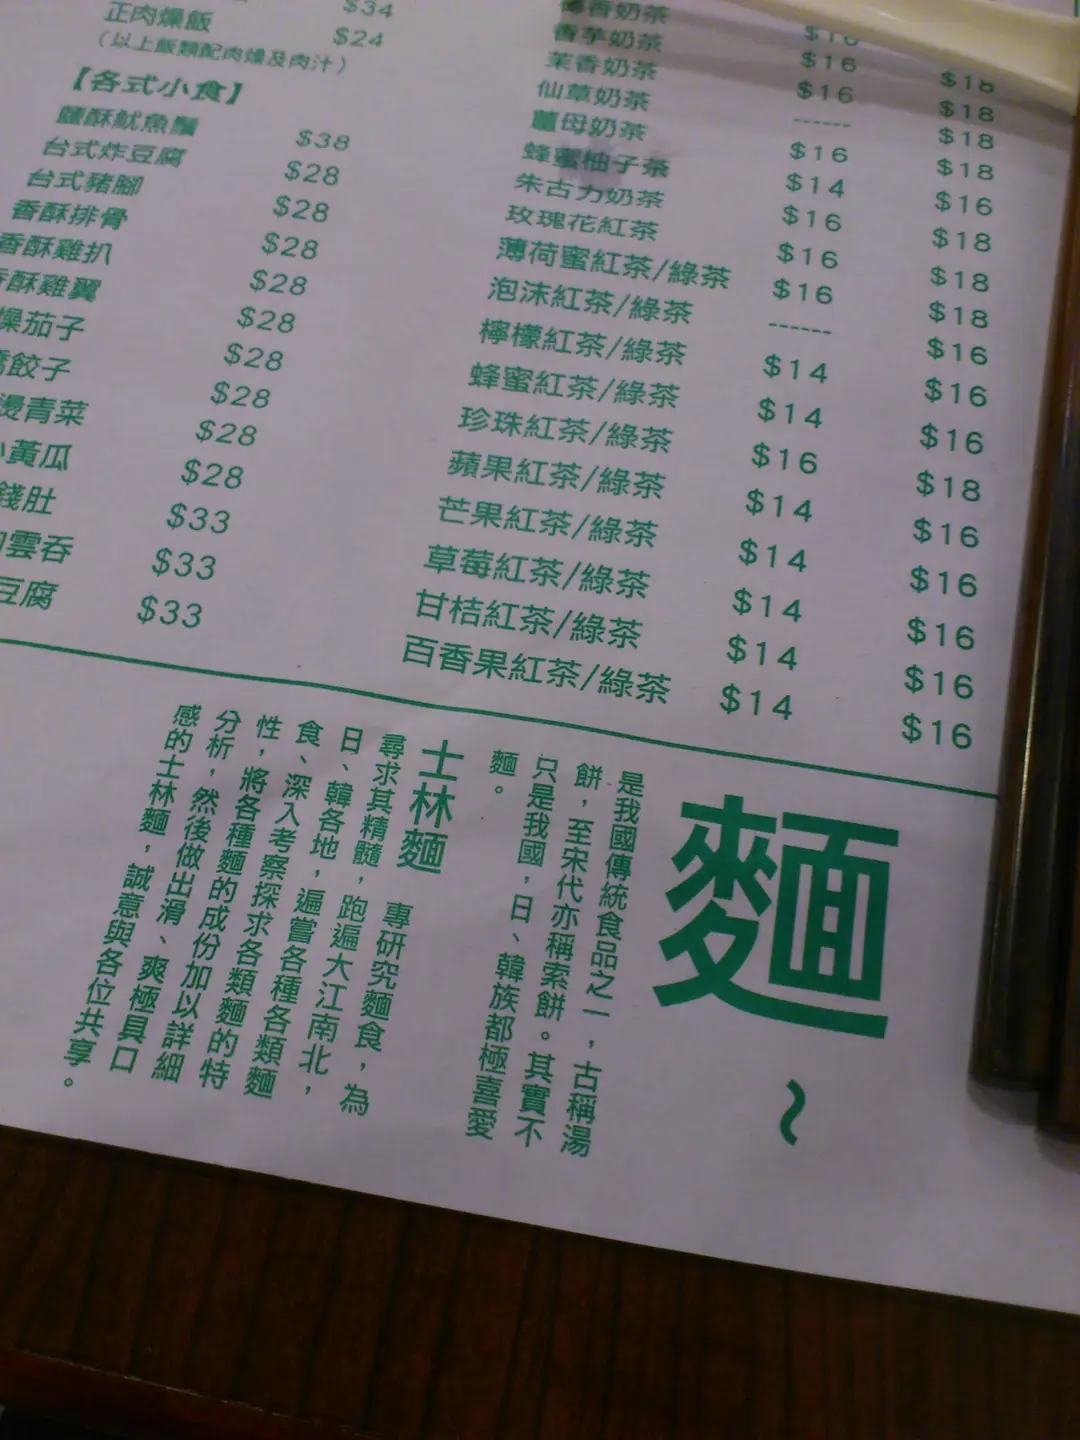 $34
正肉燥飯 $24
（以上飯類配肉燥及肉汁）
【各式小食】
鹽酥魷魚鬚 $38
台式炸豆腐 $28
台式豬腳 $28
香酥排骨 $28
香酥雞扒 $28
酥雞翼 $28
燥茄子 $28
餃子 $28
燙青菜 $28
黃瓜 $28
錢肚 $33
雲吞 $33
豆腐 $33
香奶茶 $16 $18
香芋奶茶 $16 $18
茉香奶茶 $16 $18
仙草奶茶 ------ $18
薑母奶茶 $16 $16
蜂蜜柚子茶 $14 $18
朱古力奶茶 $16 $18
玫瑰花紅茶 $16 $18
薄荷蜜紅茶/綠茶 $16 $16
泡沫紅茶/綠茶 ------ $16
檸檬紅茶/綠茶 $14 $16
蜂蜜紅茶/綠茶 $14 $18
珍珠紅茶/綠茶 $16 $16
蘋果紅茶/綠茶 $14 $16
芒果紅茶/綠茶 $14 $16
草莓紅茶/綠茶 $14 $16
甘桔紅茶/綠茶 $14 $16
百香果紅茶/綠茶 $14
麵～
是我國傳統食品之一，古稱湯
餅，至宋代亦稱索餅。其實不
只是我國，日、韓族都極喜愛
麵。
士林麵 專研究麵食，為
尋求其精髓，跑遍大江南北，
日、韓各地，遍嘗各種各類麵
食、深入考察探求各類麵的特
性，將各種麵的成份加以詳細
分析，然後做出滑、爽極具口
感的士林麵，誠意與各位共享。